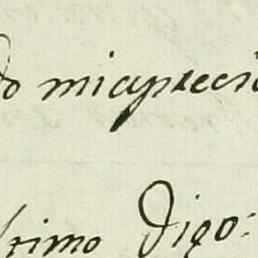 do miapreci
trimo Digo: